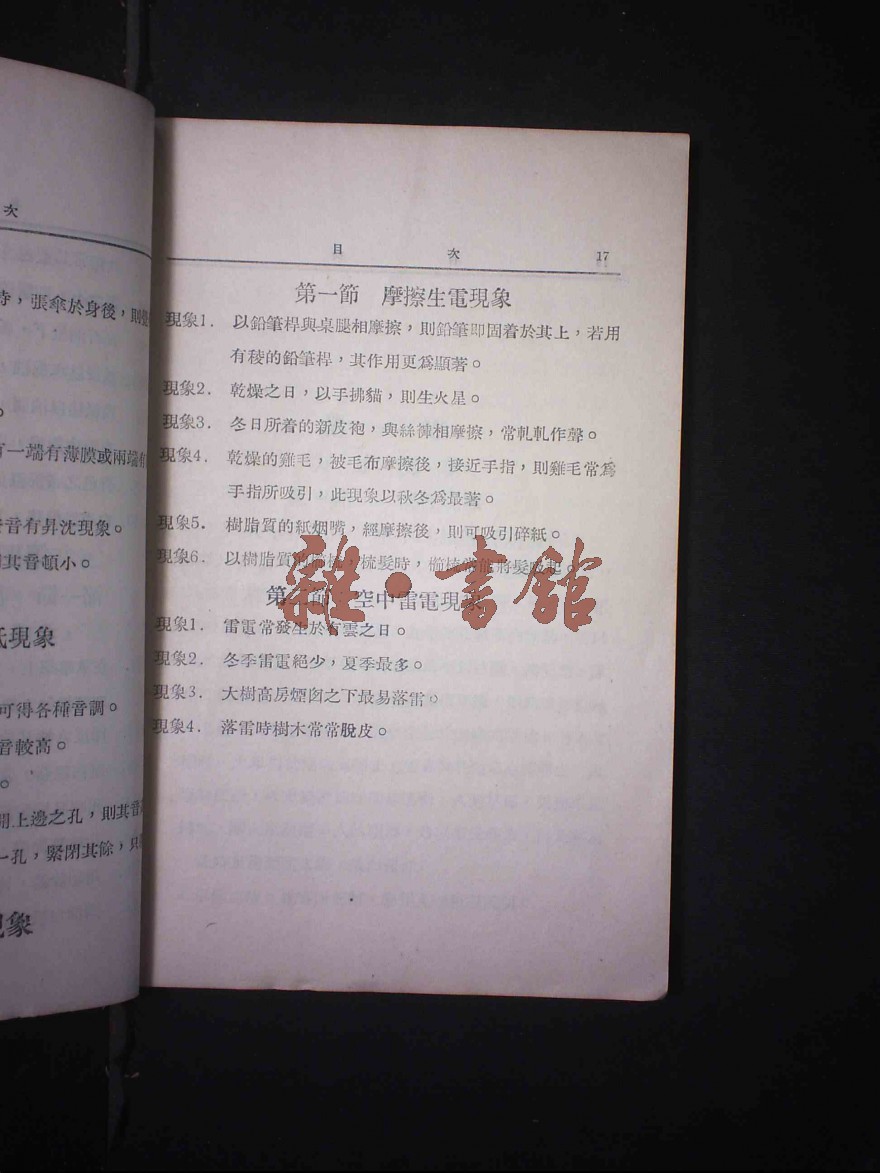 次
時，張傘於身後，則
。
一端有薄膜或兩端
音有昇沈現象。
其音頓小。
現象
可得各種音調。
音較高。
。
開上邊之孔，則其音
一孔，緊閉其餘，只
現象
目 次 17
第一節 摩擦生電現象
現象1. 以鉛筆桿與桌腿相摩擦，則鉛筆即固着於其上，若用
有稜的鉛筆桿，其作用更爲顯著。
現象2. 乾燥之日，以手拂貓，則生火星。
現象3. 冬日所着的新皮袍，與絲褲相摩擦，常軋軋作聲。
現象4. 乾燥的雞毛，被毛布摩擦後，接近手指，則雞毛常爲
手指所吸引，此現象以秋冬爲最著。
現象5. 樹脂質的紙烟嘴，經摩擦後，則可吸引碎紙。
現象6. 以樹脂質的櫛梳，梳髮時，櫛梳常能將髮吸起。
第二節 空中雷電現象
現象1. 雷電常發生於有雲之日。
現象2. 冬季雷電絕少，夏季最多。
現象3. 大樹高房煙囱之下最易落雷。
現象4. 落雷時樹木常常脫皮。
雜·書館